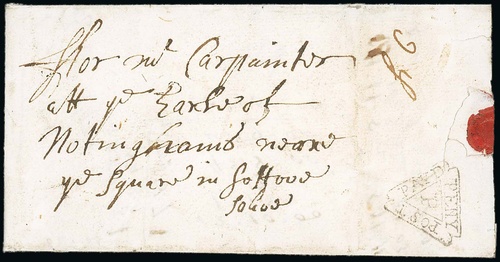 ffor mr Carpainter
att ye Earle of
Notinghams neare
ye square in
sohoe
PENY
POST
PAYD